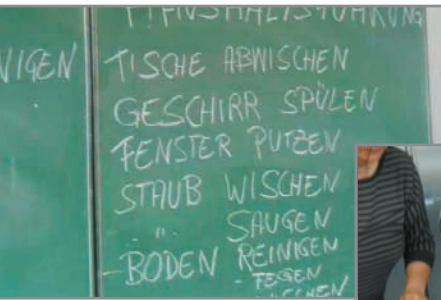 HAUSHALTSFÜHRUNG
NIGEN
TISCHE ABWISCHEN
GESCHIRR SPÜLEN
FENSTER PUTZEN
STAUB WISCHEN
" SAUGEN
-BODEN REINIGEN
- FEGEN